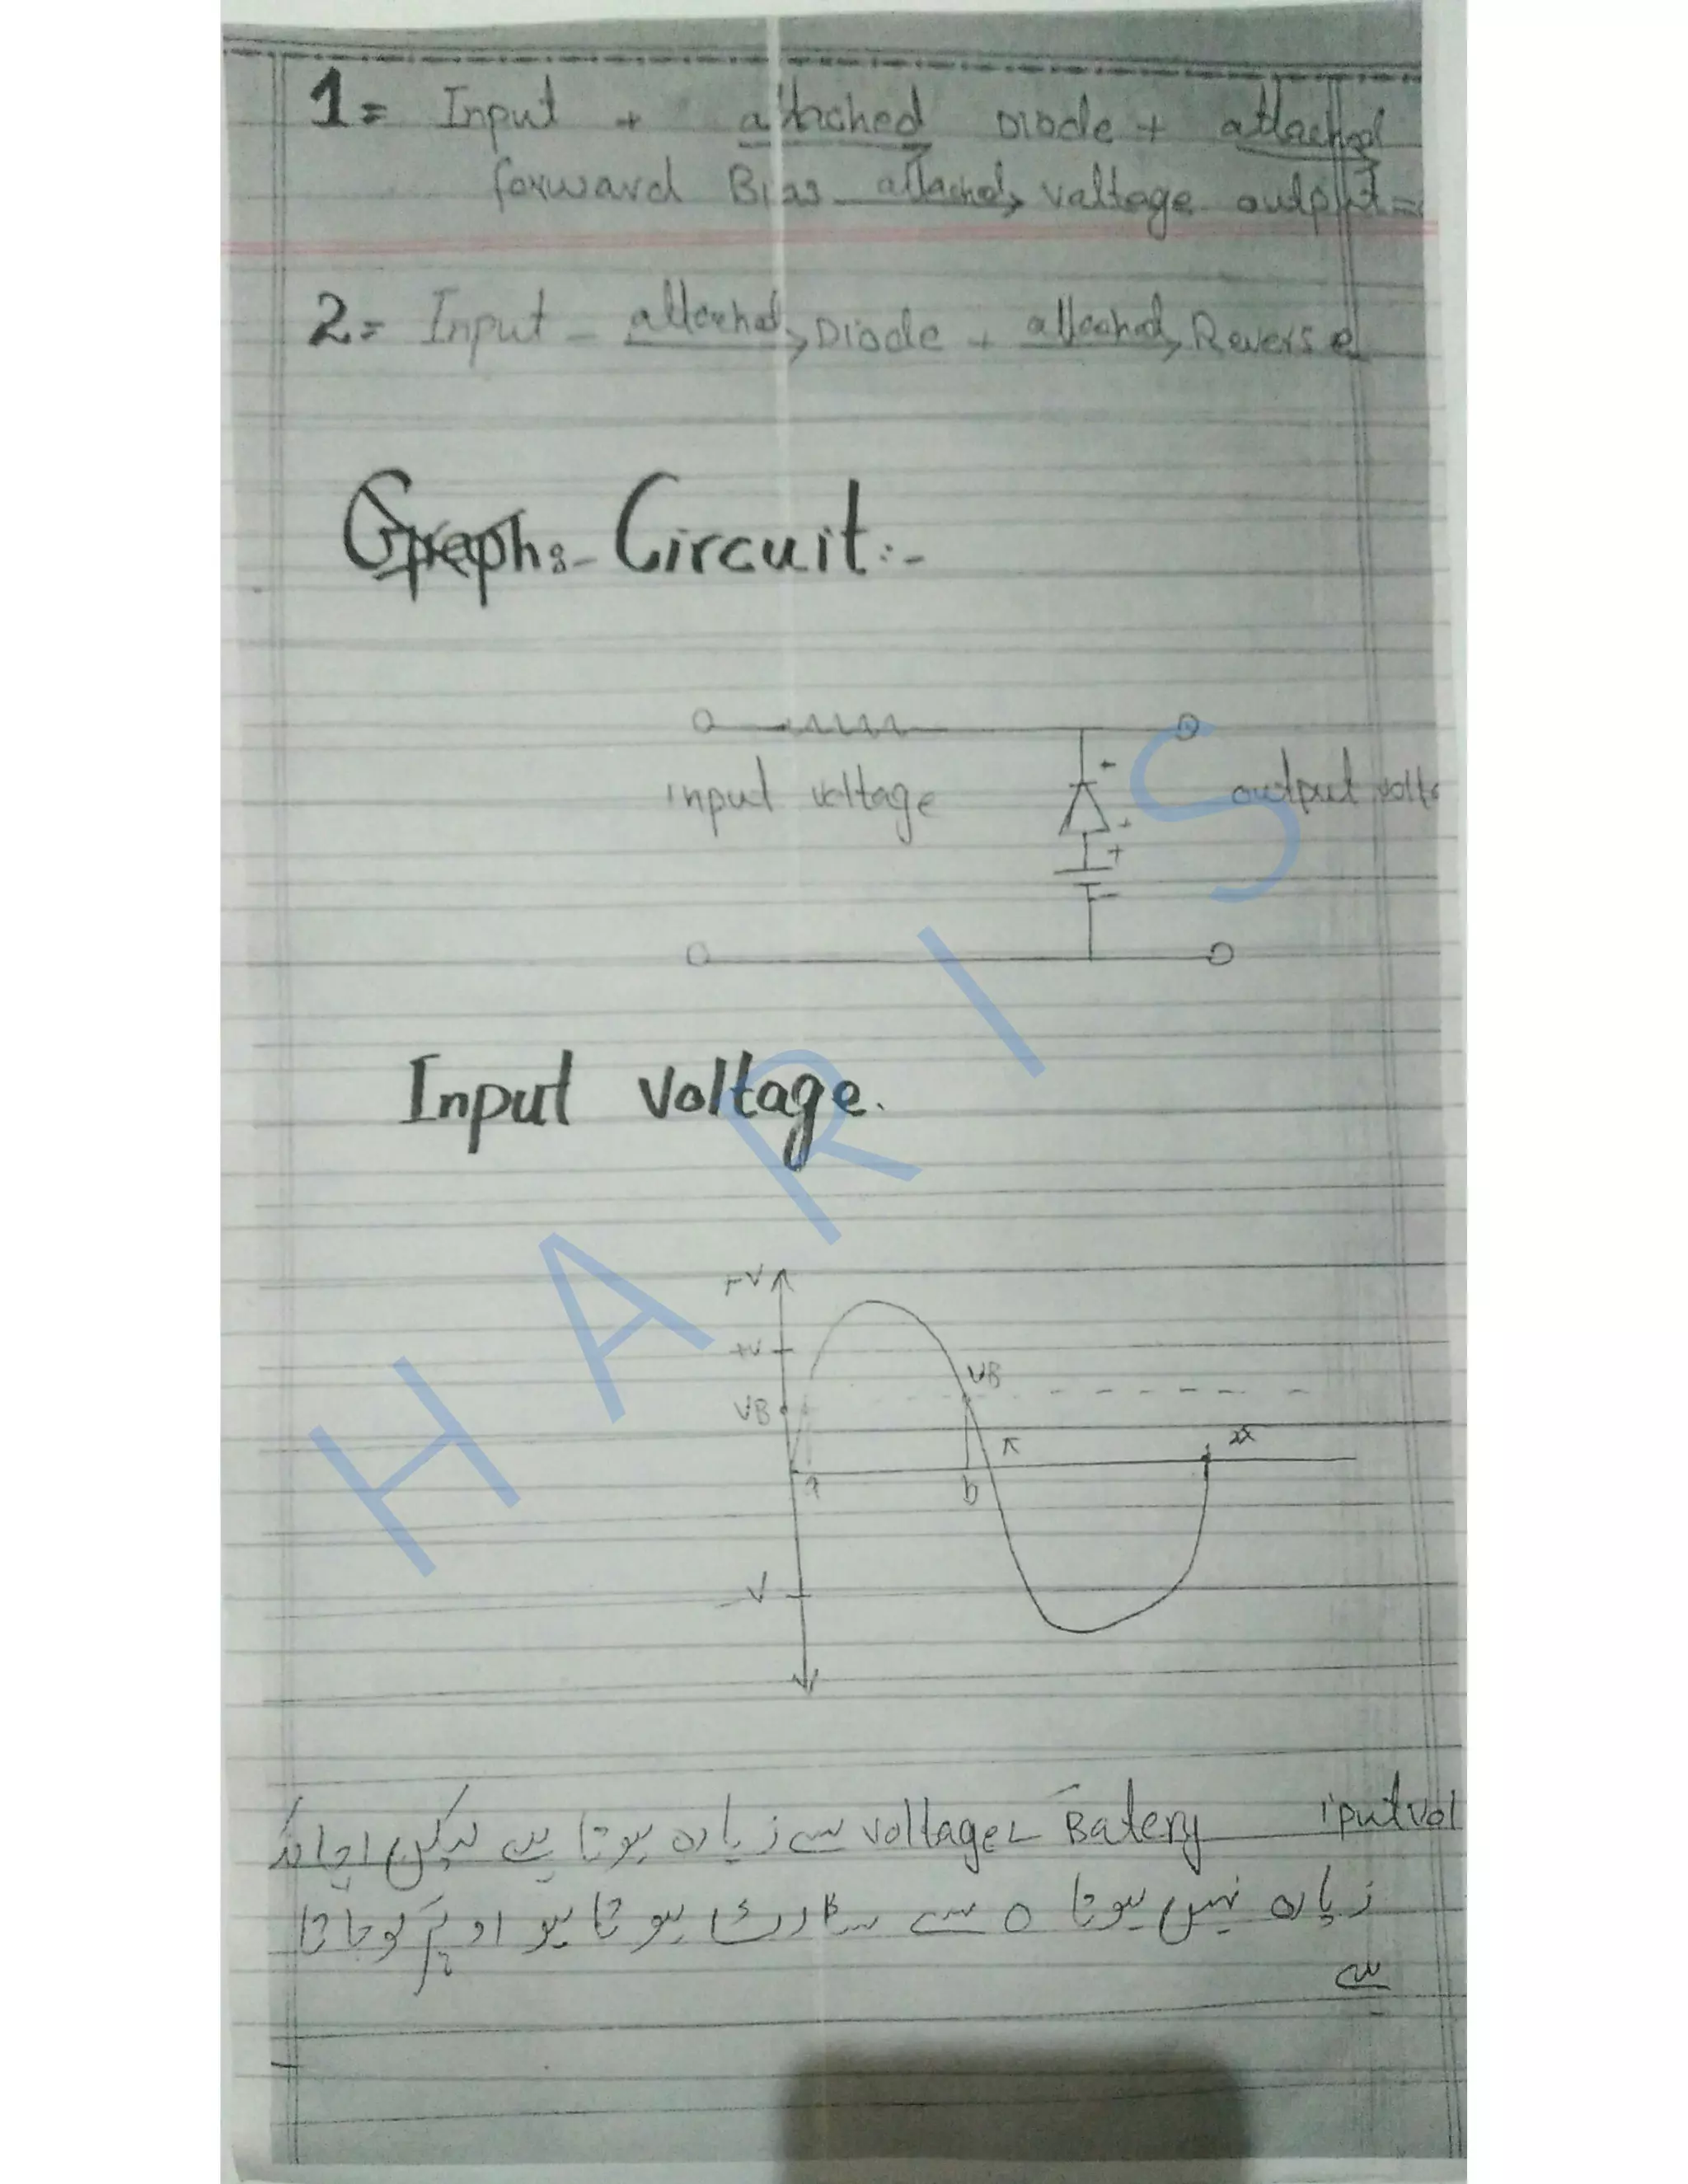 1= Input + attached Diode + attached
forward Bias attached voltage output =
2= Input - attached Diode + attached Reverse
Graph:- Circuit:-
input voltage
output volta
- + + -
Input Voltage.
+V
+V
VB
VB
π
2π
a
b
-V
iputvol Batery کے voltage سے زیادہ ہوتا ہے لیکن اچانک
زیادہ نہیں ہوتا 0 سے سٹارٹ ہوتا ہو اوپر کو جاتا
ہے
H A R I S